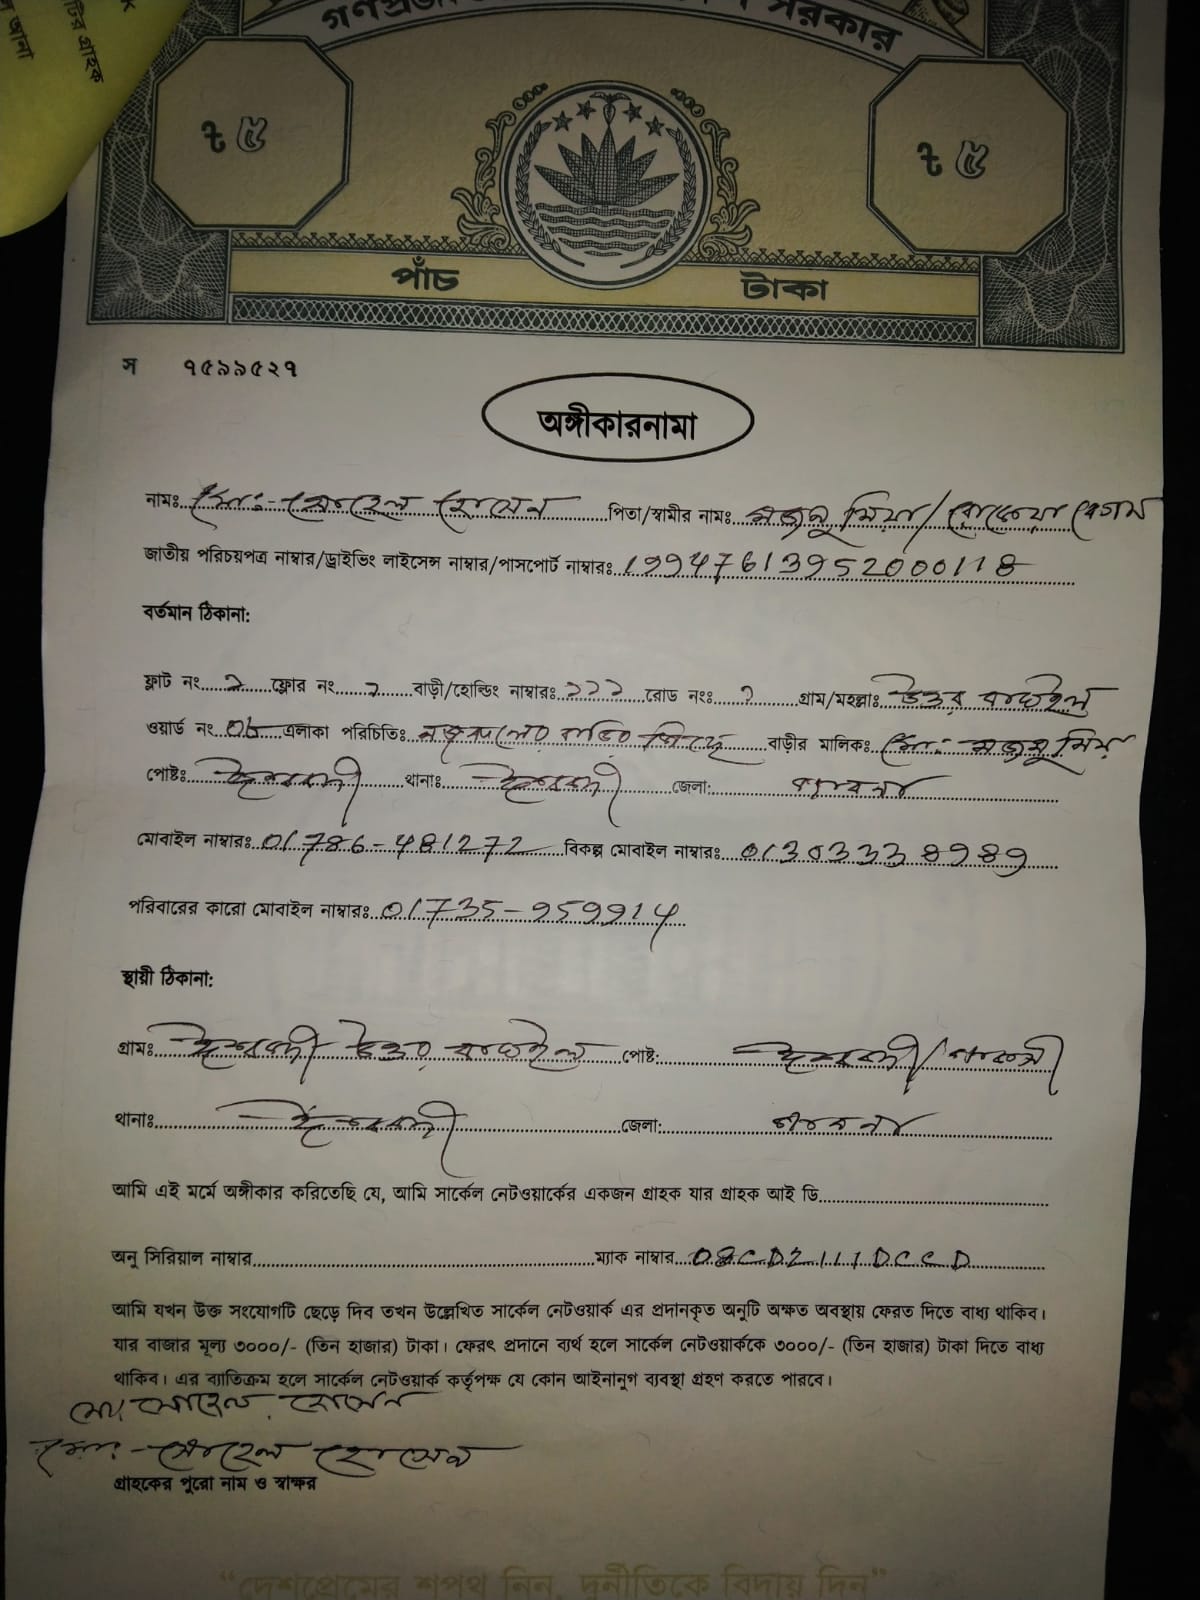 সরকার
৳ ৫
৳ ৫
পাঁচ টাকা
স ৭৫৯৯৫২৭
অঙ্গীকারনামা
নামঃ মোঃ- সোহেল হোসেন পিতা/স্বামীর নাম: মজনু মিয়া/ বেগম
জাতীয় পরিচয়পত্র নাম্বার/ড্রাইভিং লাইসেন্স নাম্বার/পাসপোর্ট নাম্বারঃ 19947613952000118
বর্তমান ঠিকানা:
ফ্লাট নং ফ্লোর নং বাড়ী/হোল্ডিং নাম্বারঃ রোড নংঃ গ্রাম/মহল্লাঃ উত্তর বাঘইল
ওয়ার্ড নং এলাকা পরিচিতিঃ বাড়ির পিছে বাড়ীর মালিকঃ মোঃ- মজনু মিয়া
পোষ্টঃ ঈশ্বরদী থানাঃ ঈশ্বরদী জেলা: পাবনা
মোবাইল নাম্বারঃ 01786-481272 বিকল্প মোবাইল নাম্বারঃ 01303338989
পরিবারের কারো মোবাইল নাম্বারঃ 01735-959914
স্থায়ী ঠিকানা:
গ্রামঃ ঈশ্বরদী উত্তর বাঘইল পোষ্ট: ঈশ্বরদী/পাকশী
থানাঃ ঈশ্বরদী জেলা: পাবনা
আমি এই মর্মে অঙ্গীকার করিতেছি যে, আমি সার্কেল নেটওয়ার্কের একজন গ্রাহক যার গ্রাহক আই ডি
অনু সিরিয়াল নাম্বার ম্যাক নাম্বার D8CD2111DCCD
আমি যখন উক্ত সংযোগটি ছেড়ে দিব তখন উল্লেখিত সার্কেল নেটওয়ার্ক এর প্রদানকৃত অনুটি অক্ষত অবস্থায় ফেরত দিতে বাধ্য থাকিব।
যার বাজার মূল্য ৩০০০/- (তিন হাজার) টাকা। ফেরৎ প্রদানে ব্যর্থ হলে সার্কেল নেটওয়ার্ককে ৩০০০/- (তিন হাজার) টাকা দিতে বাধ্য
থাকিব। এর ব্যাতিক্রম হলে সার্কেল নেটওয়ার্ক কর্তৃপক্ষ যে কোন আইনানুগ ব্যবস্থা গ্রহণ করতে পারবে।
মোঃ সোহেল হোসেন
মোঃ- সোহেল হোসেন
গ্রাহকের পুরো নাম ও স্বাক্ষর
“দেশপ্রেমের শপথ নিন, দুর্নীতিকে বিদায় দিন”